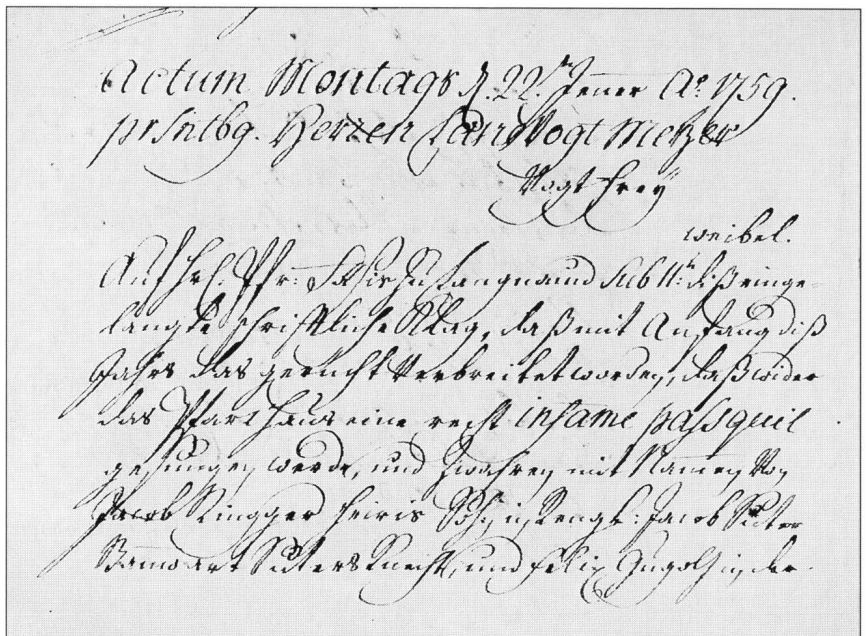 Actum Montags d. 22.t Jenner Aº. 1759.
prsntbg. Herren LandVogt Meyer
Vogt Frey
weibel.
Auf Hrl. Pfr: zu Langnau Sub 11.t diß einge-
langte schrifftliche Klag, daß mit Anfang diß
Jahrs das gerücht Verbreitet worden, daß wider
das Pfarrhaus eine recht infame passquil
gesungen werde, und zwahren mit Namen Von
Jacob Ringger Heiris Sohn in Rengg: Jacob Suter
Suters Knecht, und Felix in der